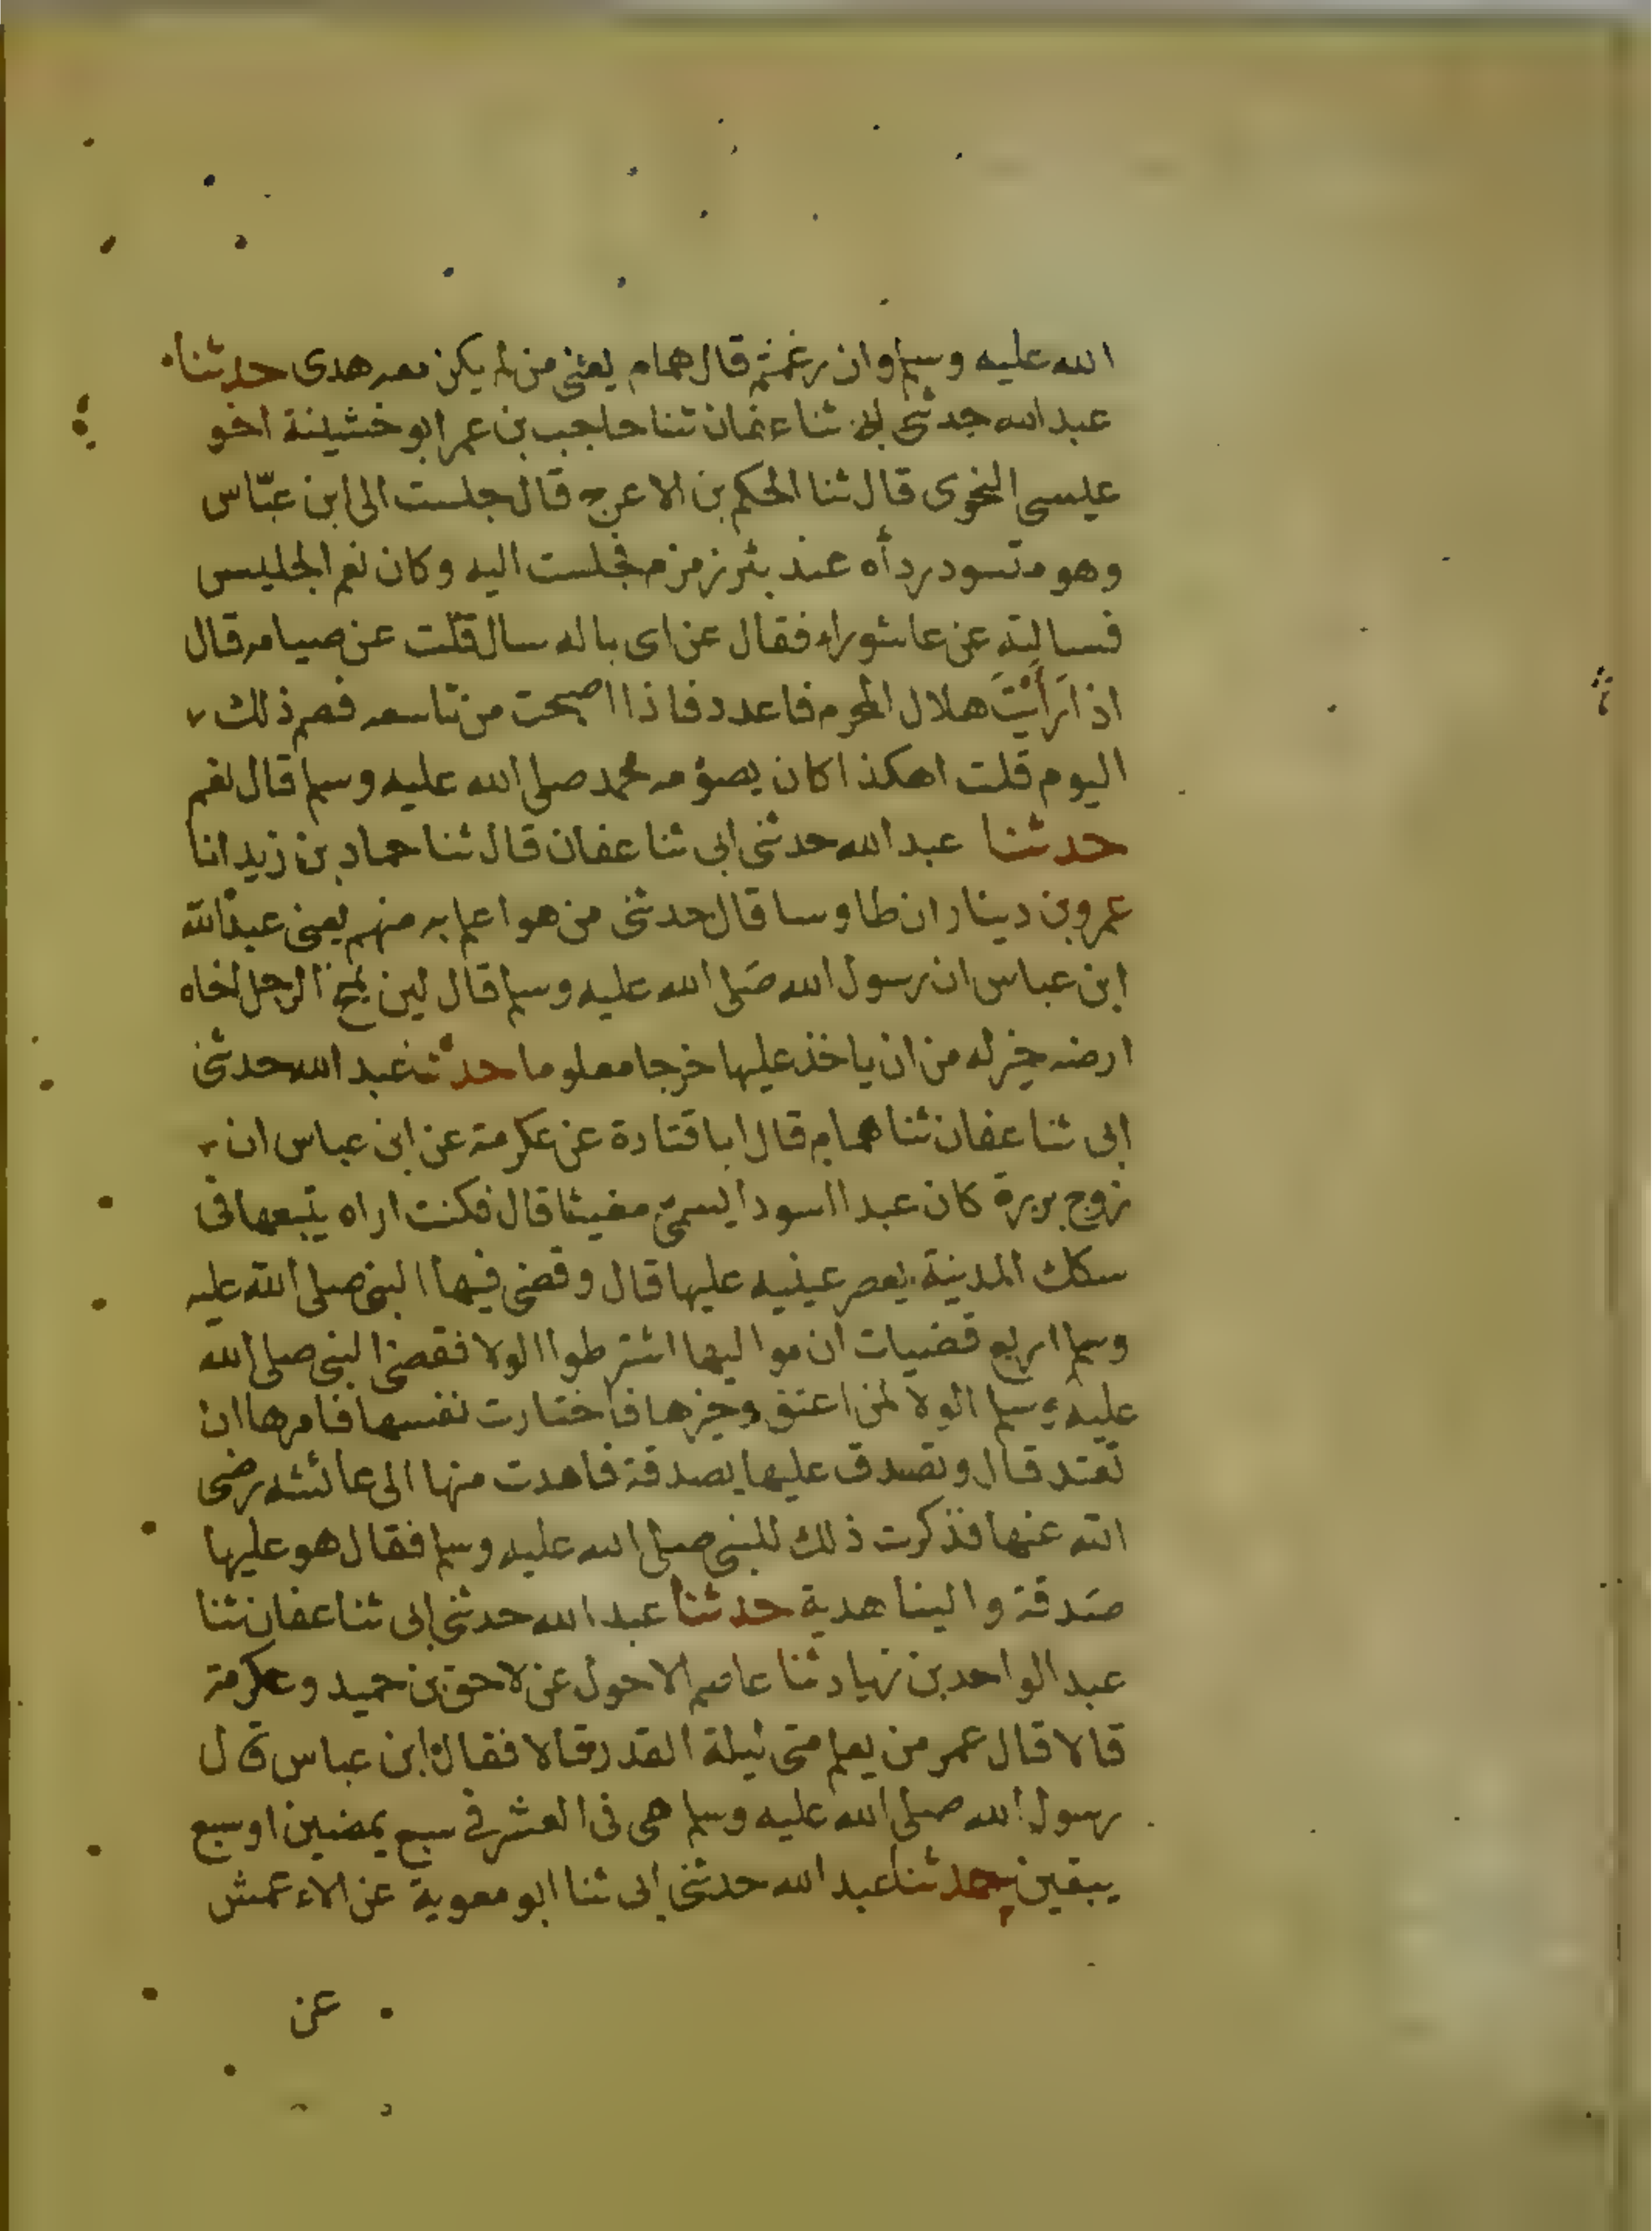 الله عليه وسلم وان رغمتم قال همام يعنى من لم يكن معه هدى حدثنا
عبد الله حدثنى ابى ثنا عفان ثنا حاجب بن عمر ابو خشينة اخو
عيسى النحوى قال ثنا الحكم بن الاعرج قال جلست الى ابن عباس
وهو متوسد رداه عند بئر زمزم فجلست اليه وكان نعم الجليس
فسالته عن عاشوراء فقال عن اى باله سال قلت عن صيامه قال
اذا رأيت هلال المحرم فاعدد فاذا اصبحت من تاسعه فصم ذلك
اليوم قلت اهكذا كان يصومه محمد صلى الله عليه وسلم قال نعم
حدثنا عبد الله حدثنى ابى ثنا عفان قال ثنا حماد بن زيد انا
عمرو بن دينار ان طاوسا قال حدثنى من هو اعلم به منهم يعنى عبد الله
ابن عباس ان رسول الله صلى الله عليه وسلم قال لين يمنح الرجل اخاه
ارضه خير له من ان ياخذ عليها خرجا معلوما حدثنا عبد الله حدثنى
ابى ثنا عفان ثنا همام قال ابا قتادة عن عكرمة عن ابن عباس ان
زوج بريرة كان عبدا اسود ايسمى مغيثا قال فكنت اراه يتبعها فى
سكك المدينة يعصر عينيه عليها قال وقضى فيها النبى صلى الله عليه
وسلم اربع قضيات ان مواليها اشترطوا الولا فقضى النبى صلى الله
عليه وسلم الولا لمن اعتق وخيرها فاختارت نفسها فامرها ان
تعتد قال وتصدق عليها بصدقة فاهدت منها الى عائشه رضى
الله عنها فذكرت ذلك للنبى صلى الله عليه وسلم فقال هو عليها
صدقة والينا هدية حدثنا عبد الله حدثنى ابى ثنا عفان ثنا
عبد الواحد بن زياد ثنا عاصم الاحول عن لاحق بن حميد وعكرمة
قالا قال عمر من يعلم متى ليلة القدر قالا فقال ابن عباس قال
رسول الله صلى الله عليه وسلم هى فى العشر فى سبع يمضين او سبع
يبقين حدثنا عبد الله حدثنى ابى ثنا ابو معوية عن الاعمش
عن